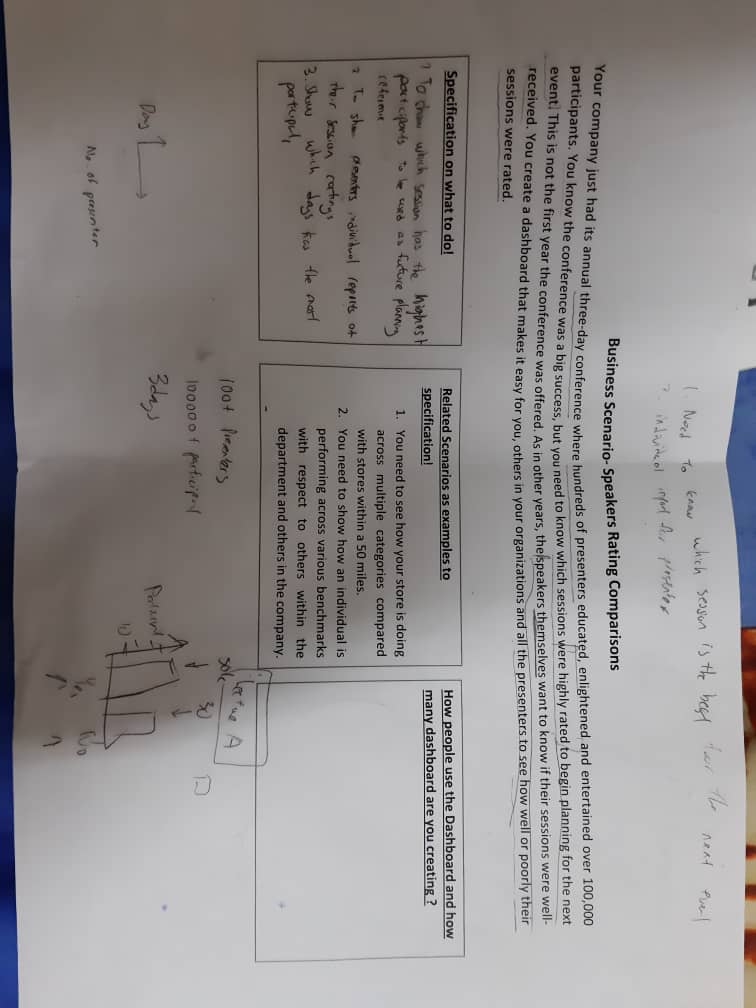 1. Need to know which session is the best for the next event
2. individual input for presenter
Business Scenario- Speakers Rating Comparisons
Your company just had its annual three-day conference where hundreds of presenters educated, enlightened and entertained over 100,000
participants. You know the conference was a big success, but you need to know which sessions were highly rated to begin planning for the next
event. This is not the first year the conference was offered. As in other years, the speakers themselves want to know if their sessions were well-
received. You create a dashboard that makes it easy for you, others in your organizations and all the presenters to see how well or poorly their
sessions were rated.
Specification on what to do!
1 To show which session has the highest
participants to be used as future planning
2 To show presenters individual reports of
their session ratings
3. Show which days has the most
participants
Related Scenarios as examples to
specification!
1. You need to see how your store is doing
across multiple categories compared
with stores within a 50 miles.
2. You need to show how an individual is
performing across various benchmarks
with respect to others within the
department and others in the company.
-
How people use the Dashboard and how
many dashboard are you creating?
100+ Presenters
100000+ participant
3days
Day 1
No. of presenter
A
30
10
Yes
No